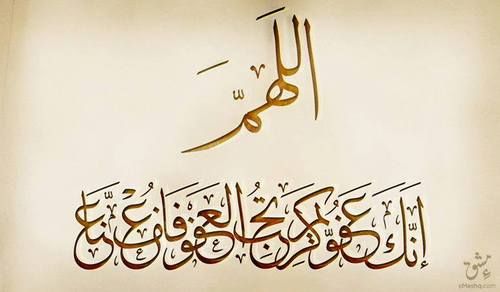 اللَّهمّ
إنّك عفوّ كريم تحبّ العفو فاعف عنّا
إمشق
eMashq.com